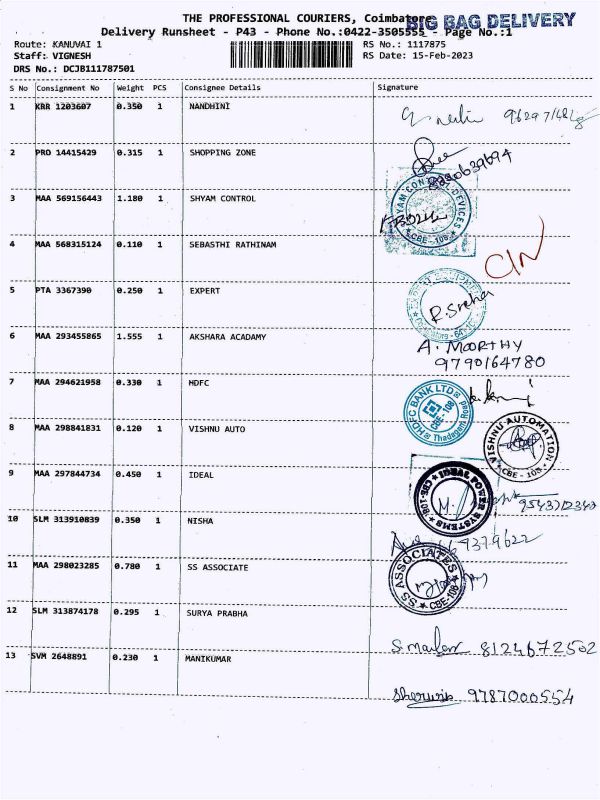 THE PROFESSIONAL COURIERS, Coimbatore
BIG BAG DELIVERY
Delivery Runsheet - P43 - Phone No.:0422-3505555 - Page No.:1
Route: KANUVAI 1
RS No.: 1117875
Staff: VIGNESH
RS Date: 15-Feb-2023
DRS No.: DCJB111787501
S No Consignment No Weight PCS Consignee Details Signature
1 KRR 1203607 0.350 1 NANDHINI
2 PRO 14415429 0.315 1 SHOPPING ZONE
3 MAA 569156443 1.180 1 SHYAM CONTROL
SHYAM CONTROL DEVICES
CBE - 108
4 MAA 568315124 0.110 1 SEBASTHI RATHINAM
5 PTA 3367390 0.250 1 EXPERT
R. Sreha
6 MAA 293455865 1.555 1 AKSHARA ACADAMY
A. MOORTHY
9790164780
7 MAA 294621958 0.330 1 HDFC
HDFC BANK LTD
CBE-108
8 MAA 298841831 0.120 1 VISHNU AUTO
VISHNU AUTOMATION
CBE - 108
9 MAA 297844734 0.450 1 IDEAL
IDEAL POWER SYSTEMS
CBE-108
10 SLM 313910839 0.350 1 NISHA
11 MAA 298023285 0.780 1 SS ASSOCIATE
SS ASSOCIATES
CBE-108
12 SLM 313874178 0.295 1 SURYA PRABHA
8124672502
13 SVM 2648891 0.230 1 MANIKUMAR
9787000554